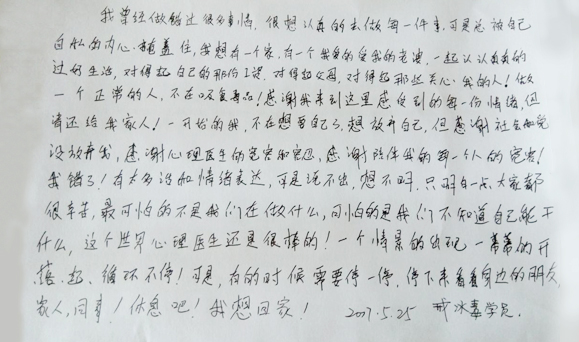 我曾经做错过很多事情，很想认真的去做每一件事，可是总被自己
自私的内心掩盖住，我想有一个家，有一个我爱的爱我的老婆，一起认认真真的
过好生活，对得起自己的那份工资，对得起父母，对得起那些关心我的人！做
一个正常的人，不在吸食毒品！感谢我来到这里感受到的每一份情绪，但
请还给我家人！一开始的我，不在想要自己了，想放弃自己，但感谢社会和党
没放弃我，感谢心理医生的宽容和宽恕，感谢陪伴我的每一个人的宽容！
我错了！有太多没和情绪表达，可是说不出，想不明，只明白一点，大家都
很辛苦，最可怕的不是我们在做什么，可怕的是我们不知道自己能干
什么，这个世界心理医生还是很棒的！一个情景的出现一幕幕的开
起、循环不停！可是，有的时候需要停一停，停下来看看身边的朋友，
家人，同事！休息吧！我想回家！ 2007.5.25 戒冰毒学员.